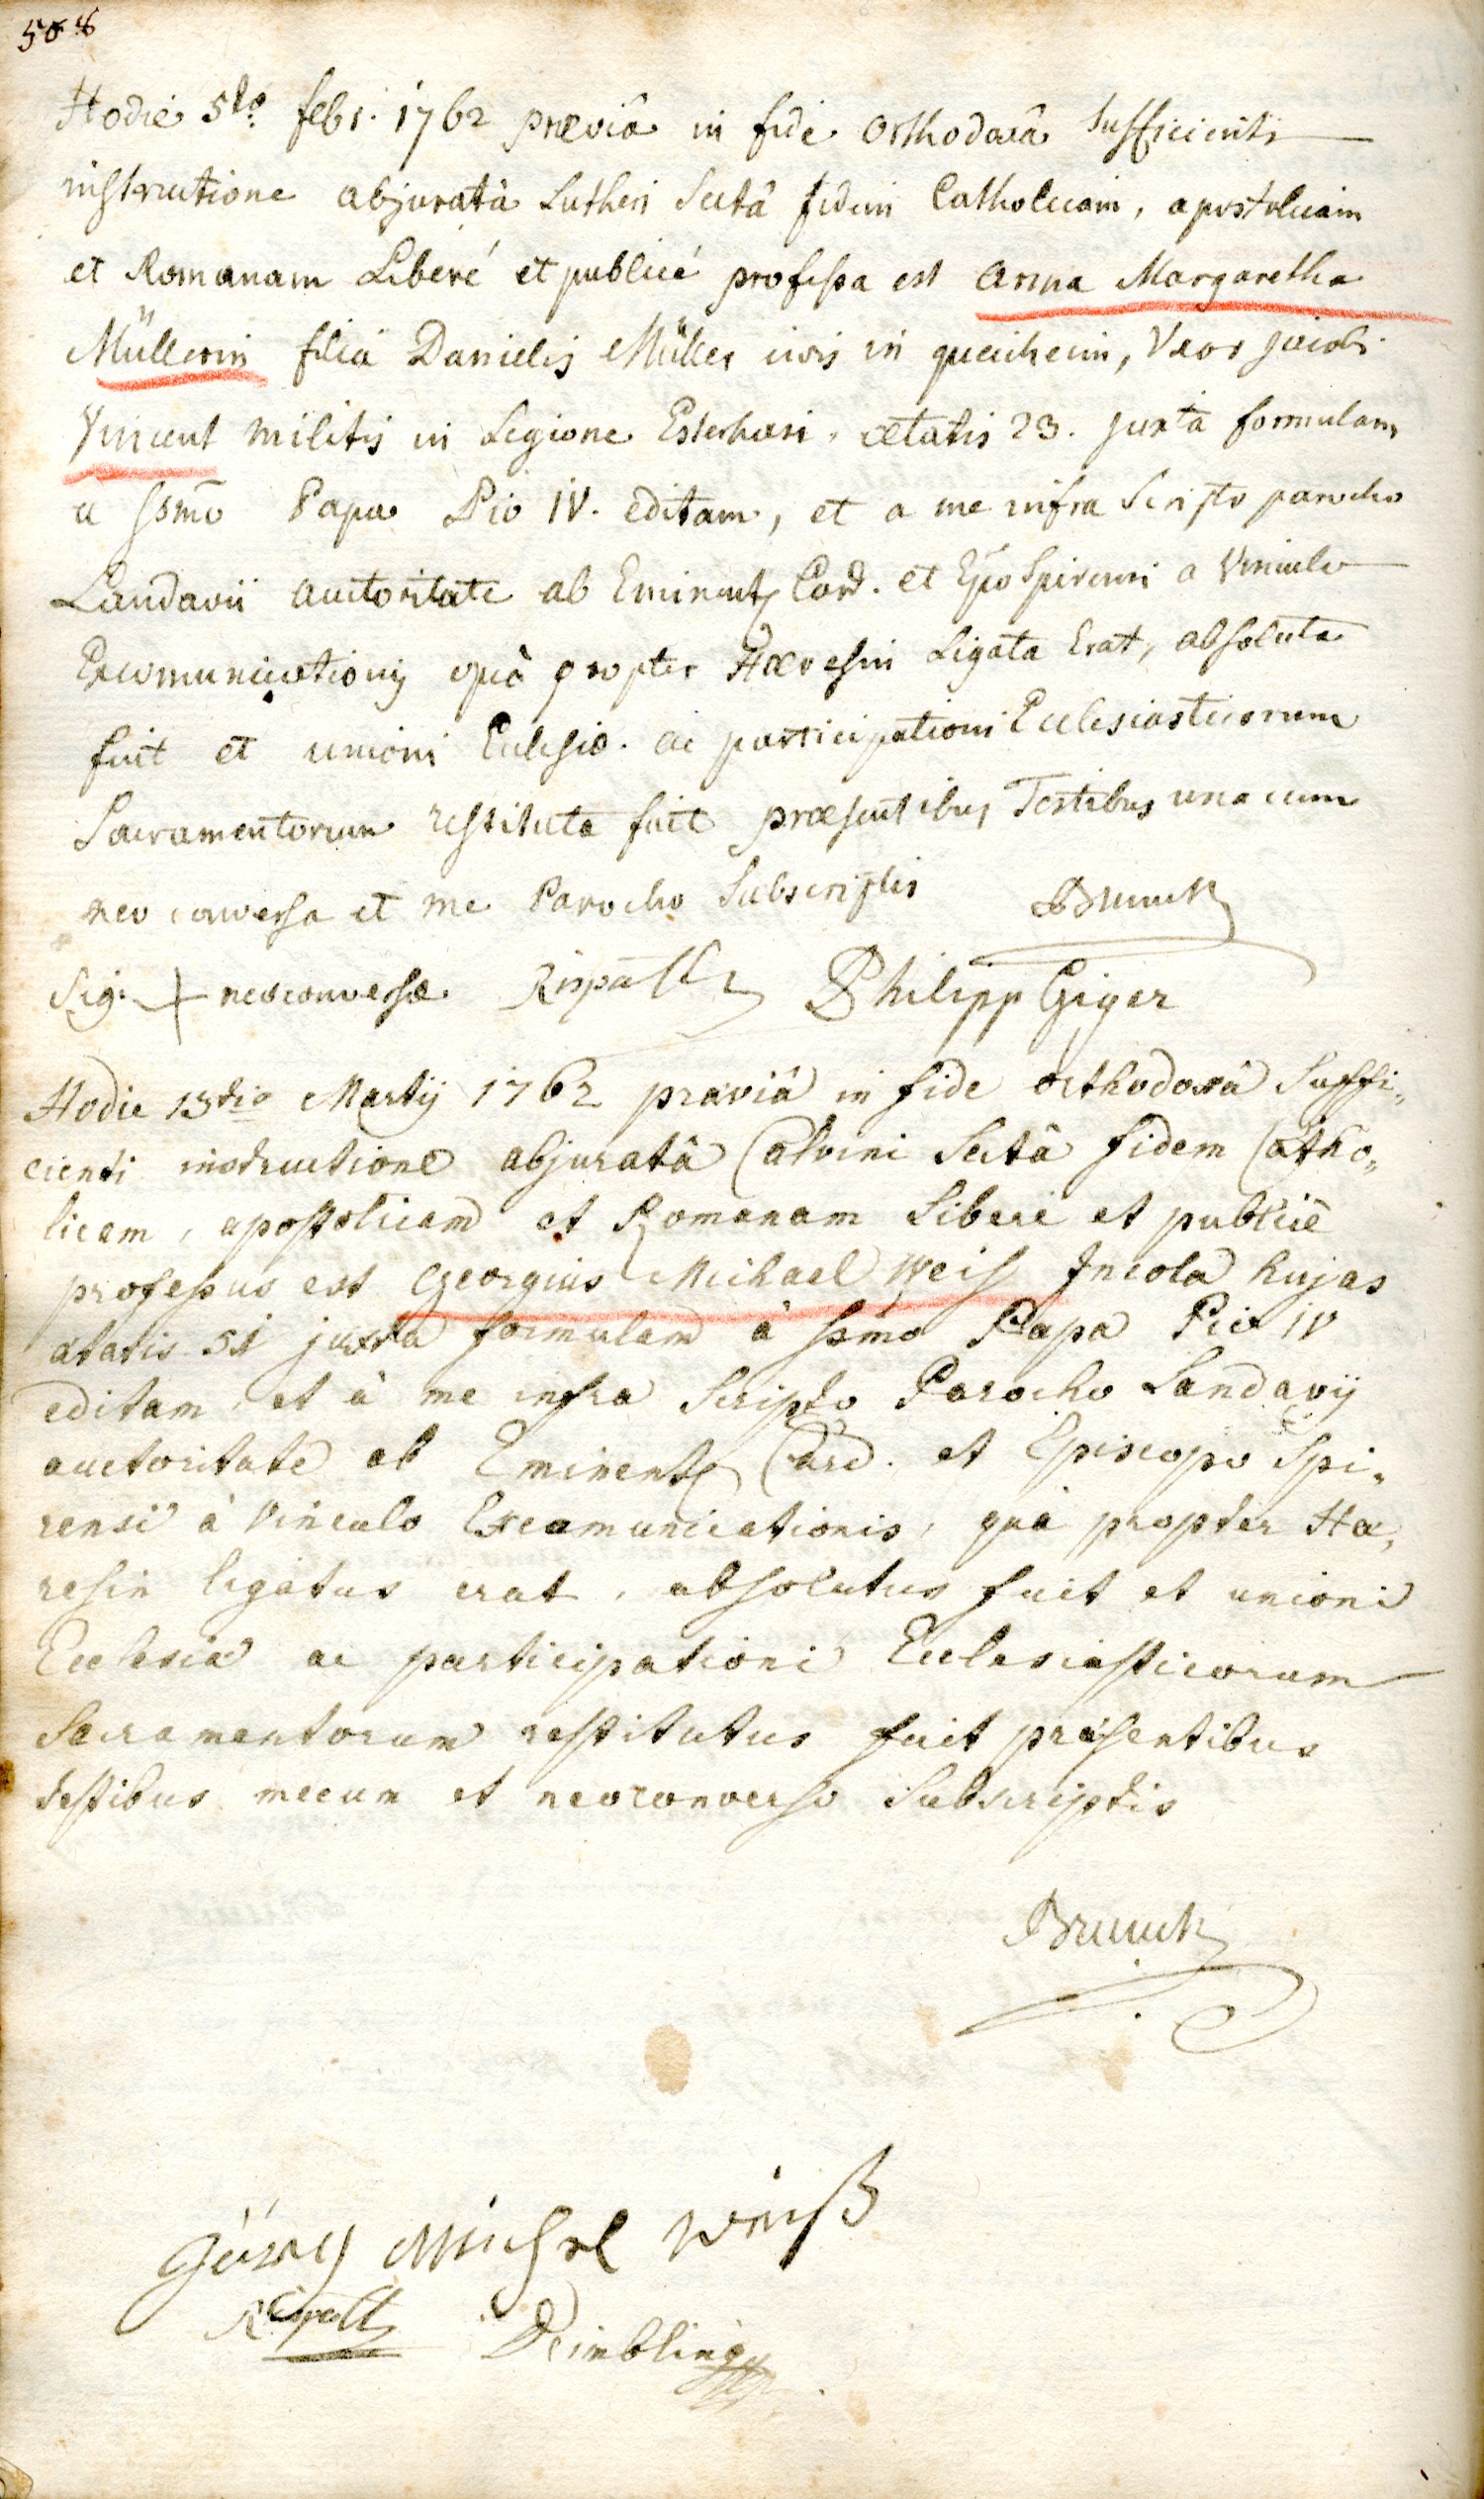 508
Hodie 5to. febr. 1762 præviâ in fide Orthodoxâ Sufficienti
instructione abjuratâ Lutheri Sectâ fidem Catholicam, apostolicam
et Romanam Liberé et publicé professa est Anna Margaretha
Müllerin filia Danielis Müller civis in queicheim, Uxor jacobi
Vincent militis in Legione Esterhasi, ætatis 23. juxta formulam
a ssmō Papa Pio IV. editam, et a me infra Scripto parocho
Landavii auctoritate ab Eminent Card. et Epō Spirensi a Vinculo
Excomunicationis quâ propter Hæresin Ligata Erat, absoluta
fuit et unioni Ecclesiæ. ac participationi Ecclesiasticorum
Sacramentorum restituta fuit præsentibus Testibus una cum
neo conversa et me Parocho Subscriptis Brunck
Sig. + neoconversæ Philipp Giger
Hodie 13tio Martij 1762 præviâ in fide orthodoxâ Suffi„
cienti instructione abjuratâ Calvini Sectâ fidem Catho„
licam, apostolicam et Romanam Liberè et publicè
professus est Georgius Michael Weiss Incola hujas
ætatis 51 juxta formulam â ssmo Papa Pio IV
editam, et à me infra Scripto Parocho Landavij
auctoritate ab Eminent Card. et Episcopo Spi„
rensi à Vinculo Excomunicationis, quâ propter Hæ„
resin ligatus erat, absolutus fuit et unioni
Ecclesiæ ac participationi Ecclesiasticorum
Sacramentorum restitutus fuit præsentibus
testibus mecum et neoconverso Subscriptis
Brunck
Görg Michel Weiß
Deimbling